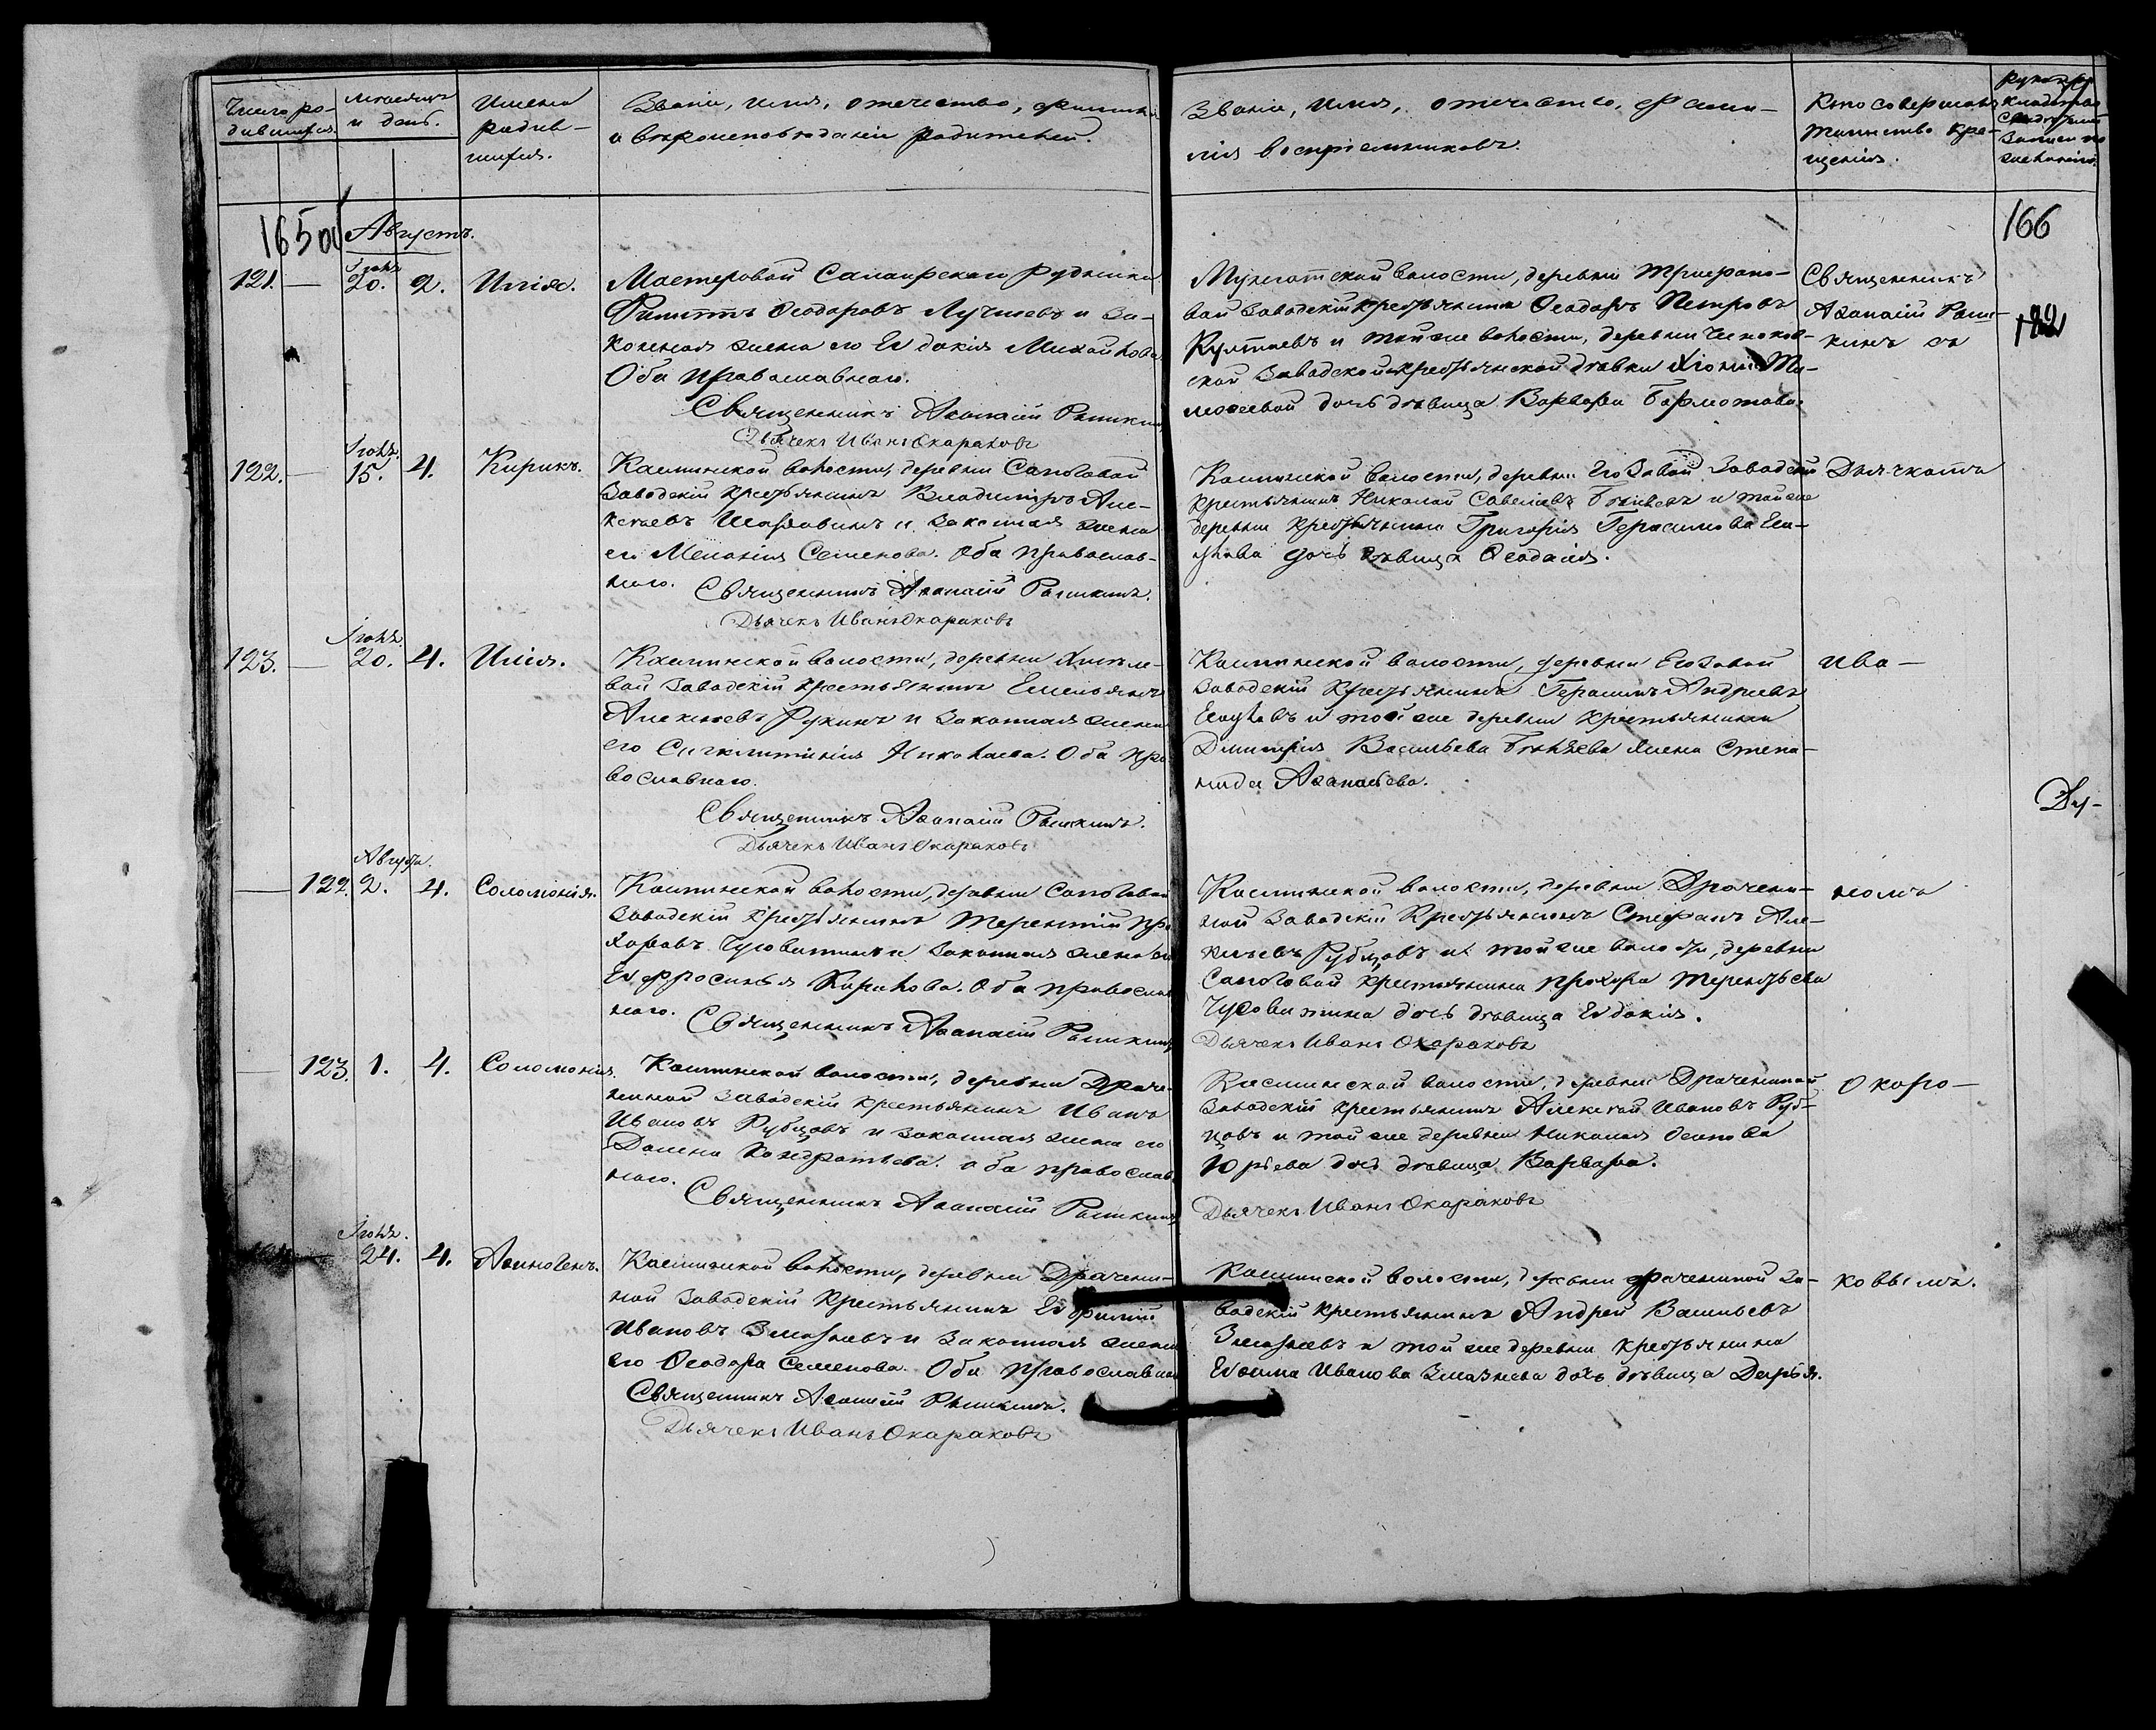 Число ро-
дившихся.
Мѣсяцъ
и день.
Имена
родив-
шихся.
Званіе, имя, отечество, фамилія
и вѣроисповѣданіе родителей.
Званіе, имя, отечество, фами-
лія воспріемниковъ.
Кто совершалъ
таинство кре-
щенія.
записи по
желанію.
165 об
166
Августъ.
121. — Іюля 20. 2. Илія.
Мастеровой Салаирскаго рудника
Филиппъ Ѳеодоровъ Лучшевъ и за-
конная жена его Евдокія Михайлова
Оба православнаго.
Священникъ Аѳанасій Рышкинъ
Дьячекъ Иванъ Окараковъ
Мунгатской волости, деревни
вой заводскій крестьянинъ Ѳеодоръ Петровъ
и той же волости, деревни
ской заводской крестьянской дѣвки Хіоніи Ти-
моѳеевой дочь дѣвица Варвара Бормотова.
Священникъ
Аѳанасій Рыш-
кинъ съ
182
122. — Іюля 15. 4. Кирикъ.
Касминской волости, деревни Сапоговой
заводскій крестьянинъ Владимиръ Але-
ксѣевъ и законная жена
его Меланія Семенова. Оба православ-
наго. Священникъ Аѳанасій Рышкинъ.
Дьячекъ Иванъ Окараковъ
Касминской волости, деревни Егозовой заводскій
крестьянинъ Николай Савельевъ и той же
деревни крестьянина Григорія Герасимова Еко-
лова дочь дѣвица Ѳеодосія.
Дьячкомъ
123. — Іюля 20. 4. Илія.
Касминской волости, деревни Хмѣле-
вой заводскій крестьянинъ Емельянъ
Алексѣевъ и законная жена
его Сигклитикія Николаева. Оба пра-
вославнаго.
Священникъ Аѳанасій Рышкинъ.
Дьячекъ Иванъ Окараковъ
Касминской волости, деревни Егозовой
заводскій крестьянинъ Герасимъ Андреевъ
и той же деревни крестьянина
Димитрія Васильева жена Степа-
нида Аѳанасьева.
Ива-
Ду-
— 122. Августа. 2. 4. Соломонія.
Касминской волости, деревни Сапоговой
заводскій крестьянинъ Терентій Про-
хоровъ Чусовитинъ и законная жена его
Евфросинья Кирилова. Оба православ-
наго. Священникъ Аѳанасій Рышкинъ
Касминской волости, деревни Драчени-
ной заводскій крестьянинъ Стефанъ Але-
ксѣевъ Рубцовъ и той же волости, деревни
Сапоговой крестьянина Прохора Терентьева
Чусовитина дочь дѣвица Евдокія.
Дьячекъ Иванъ Окараковъ
номъ
— 123. 1. 4. Соломонія.
Касминской волости, деревни Драче-
ниной заводскій крестьянинъ Иванъ
Ивановъ Рубцовъ и законная жена его
Домна Кондратьева. Оба православ-
наго.
Священникъ Аѳанасій Рышкинъ
Касминской волости, деревни Драчениной
заводскій крестьянинъ Алексѣй Ивановъ Руб-
цовъ и той же деревни Николая Осипова
Юрьева дочь дѣвица Варвара.
Дьячекъ Иванъ Окараковъ
Окоро-
Іюля. 24. 4. Аѳиногенъ.
Касминской волости, деревни Драчени-
ной заводскій крестьянинъ Евфимій
Ивановъ Змазневъ и законная жена
его Ѳеодора Семенова. Оба православнаго
Священникъ Аѳанасій Рышкинъ.
Дьячекъ Иванъ Окараковъ
Касминской волости, деревни Драчениной за-
водскій крестьянинъ Андрей Васильевъ
Змазневъ и той же деревни крестьянина
Евфима Иванова Змазнева дочь дѣвица Дарья.
ковымъ.